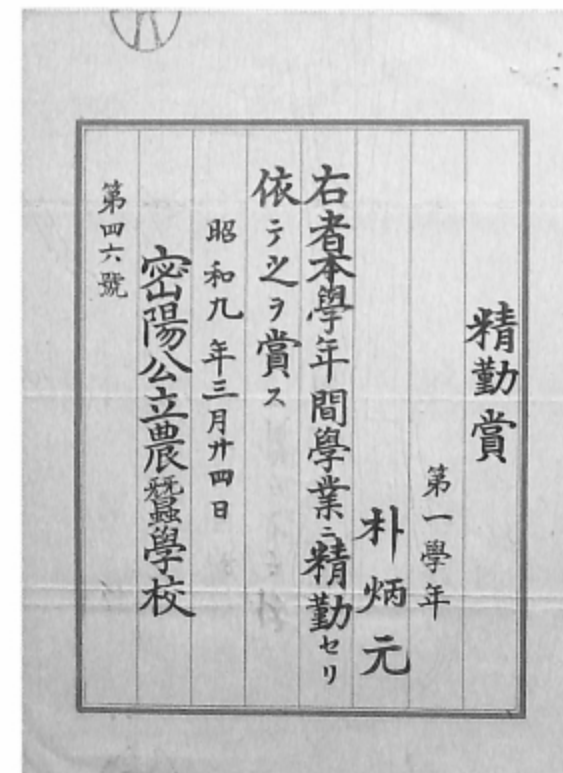 精勤賞
第一學年
朴炳元
右者本學年間學業ニ精勤セリ
依テ之ヲ賞ス
昭和九年三月廿四日
密陽公立農蠶學校
第四六號